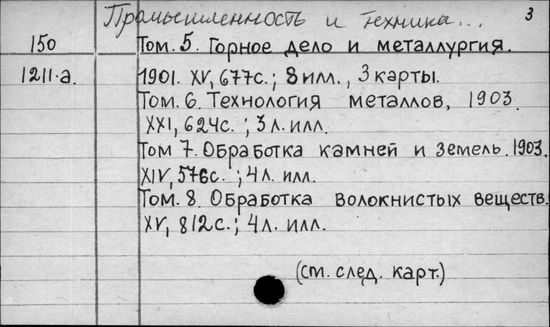 Промышленность и техника... 3
150 Том. 5. Горное дело и металлургия.
1211.а. 1901. XV, 677с.; 8 илл., 3 карты.
Том. 6. Технология металлов, 1903.
XXI, 624с. ; 3 л. илл.
Том 7. Обработка камней и земель. 1903.
XIV, 576с. ; 4 л. илл.
Том. 8. Обработка волокнистых веществ.
XV, 812с. ; 4 л. илл.
(см. след. карт.)